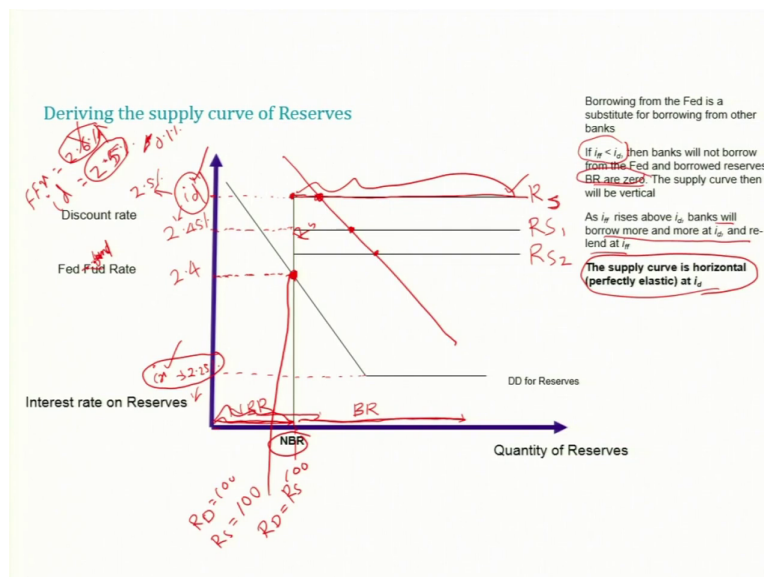 Deriving the supply curve of Reserves
Borrowing from the Fed is a
substitute for borrowing from other
banks
If iff < id, then banks will not borrow
from the Fed and borrowed reserves
BR are zero. The supply curve then
will be vertical
As iff rises above id, banks will
borrow more and more at id, and re-
lend at iff
The supply curve is horizontal
(perfectly elastic) at id
id = 2.5%
2.5%
id
Discount rate
2.45%
Fed Fud Rate
2.4
Rs
Rs
RS1
RS2
ir → 2.25
DD for Reserves
Interest rate on Reserves
NBR
BR
NBR
Quantity of Reserves
100
RD=100
RS=100
RD=RS